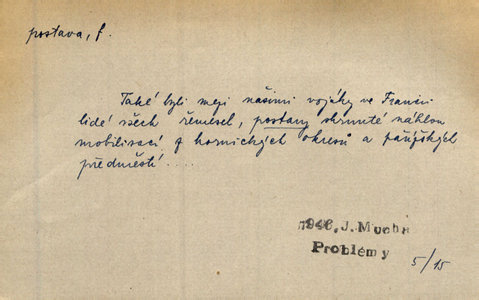 postava, f.
Také byli mezi našimi vojáky ve Francii
lidé všech řemesel, postavy shrnuté náhlou
mobilisací z hornických okresů a pařížských
předměstí....
1946, J. Mucha
Problémy
5/15